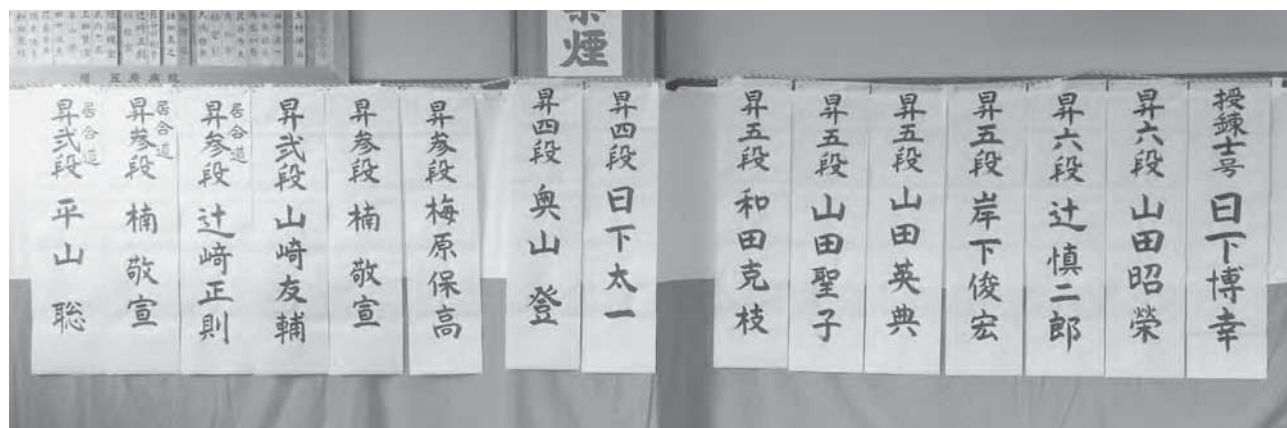 授錬士号 日下博幸
昇六段 山田昭榮
昇六段 辻慎二郎
昇五段 岸下俊宏
昇五段 山田英典
昇五段 山田聖子
昇五段 和田克枝
昇四段 日下太一
昇四段 奥山登
昇参段 梅原保高
昇参段 楠敬宣
昇弐段 山崎友輔
居合道 昇参段 辻﨑正則
居合道 昇参段 楠敬宣
居合道 昇弐段 平山聡
煙